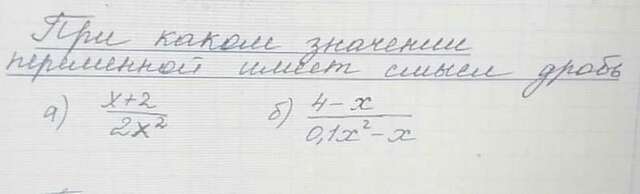 При каком значении
переменной имеет смысл дробь
а) x+2/2x² б) 4-x/0,1x²-x